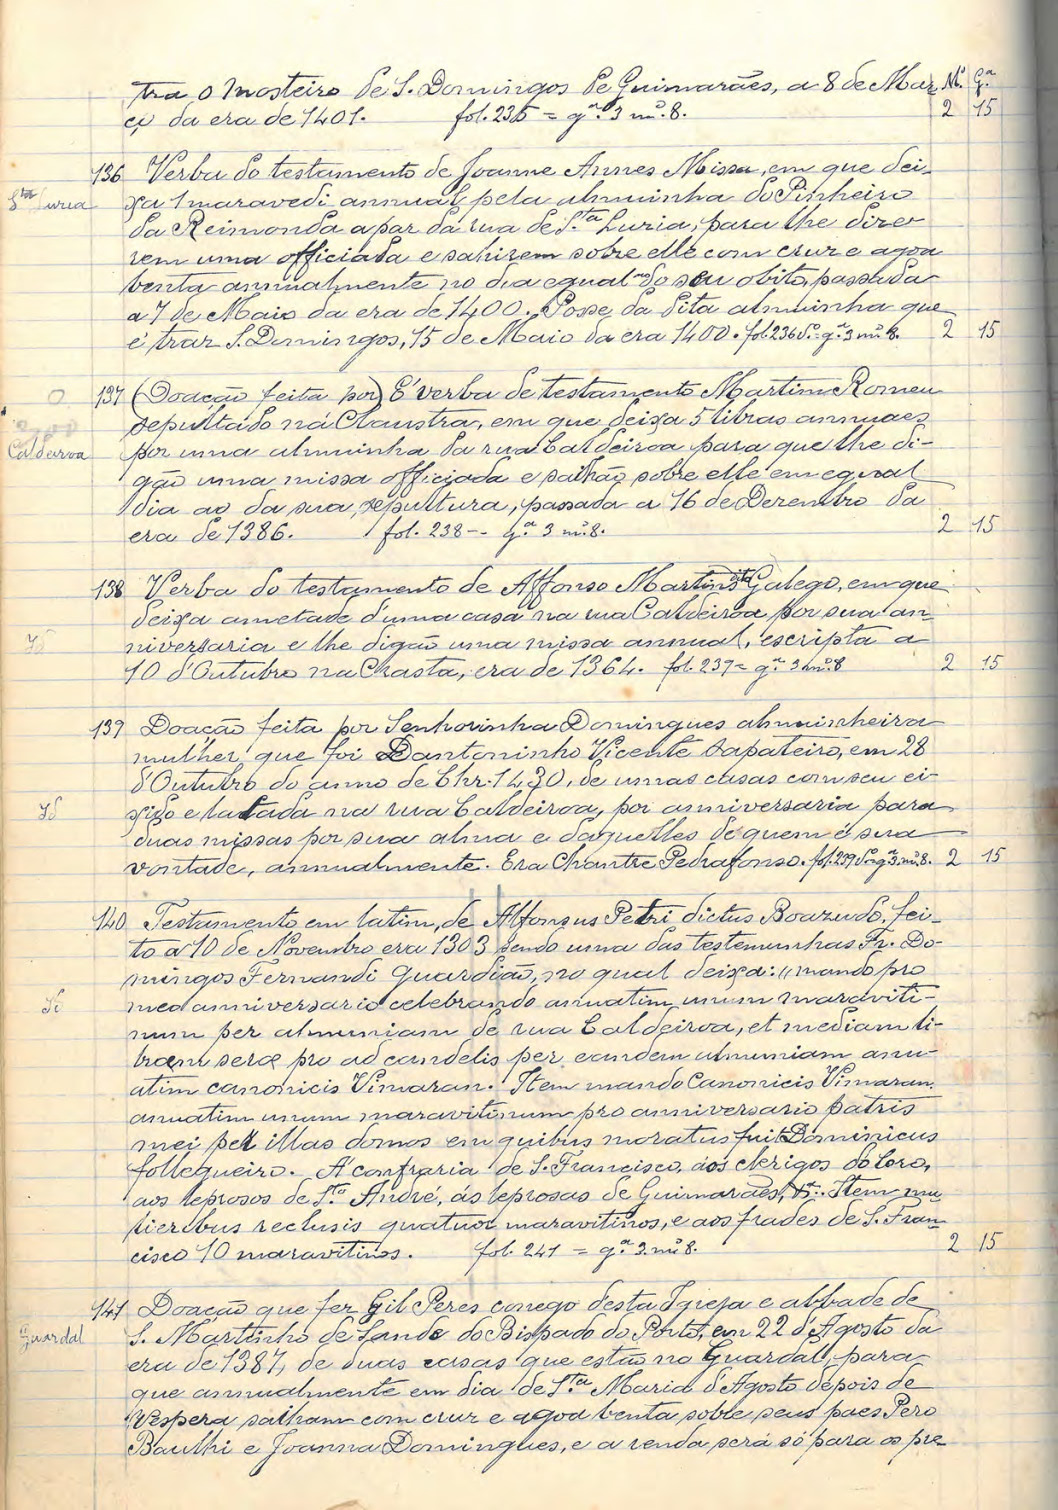 tra o Mosteiro de S. Domingos de Guimarães, a 8 de Mar M.º G.ª
ço da era de 1401. fol. 235 = g.ª 3 m.º 8. 2 15
136 Verba do testamento de Joanne Annes Missa, em que dei-
S.ta Luzia xa 1 maravedi annual pela almuinha do Pinheiro
da Reimonda a par da rua de S.ta Luzia, para lhe dize
rem uma officiada e sahirem sobre elle com cruz e agoa
benta annualmente no dia egual ao do seu obito, passada
a 7 de Maio da era de 1400. Posse da dita almuinha que
é traz S. Domingos, 15 de Maio da era 1400. fol. 236 v.º = g.ª 3 m.º 8. 2 15
137 (Doação feita por) É verba de testamento Martim Romeu
sepultado na Claustra, em que deixa 5 libras annuaes
Caldeiroa por uma almuinha da rua Caldeiroa para que lhe di-
gão uma missa officiada e saihão sobre elle em egual
dia ao da sua sepultura, passada a 16 de Dezembro da
era de 1386. fol. 238 -- g.ª 3 m.º 8. 2 15
138 Verba do testamento de Affonso Martins dito Galego, em que
deixa ametade d'uma casa na rua Caldeiroa por sua an-
Id niversaria e lhe digão uma missa annual, escripta a
10 d'Outubro na Crasta, era de 1364. fol. 237 = g.ª 3 m.º 8 2 15
139 Doação feita por Senhorinha Domingues almuinheira
mulher que foi Dantoninho Vicente sapateiro, em 28
d'Outubro do anno de Chr. 1430, de umas casas com seu ei-
Id xido e latada na rua Caldeiroa, por anniversaria para
duas missas por sua alma e daquelles de quem é sua
vontade, annualmente. Era Chantre Pedrafonso. fol. 239 v.º = g.ª 3 m.º 8. 2 15
140 Testamento em latim, de Alfonsus Petri dictus Boazudo, fei-
to a 10 de Novembro era 1303 sendo uma das testemunhas Fr. Do-
mingos Fernandi Guardião, no qual deixa: "mando pro
Id mea anniversario celebrando annuatim unum maraviti-
num per almuniam de rua Caldeiroa, et mediam li-
bram seræ pro ad candelis per eandem almuniam annu-
atim canonicis Vimaran. Item mando Canonicis Vimaran.
annuatim unum maravitinum pro anniversario patris
mei per illas domos em quibus moratus fuit Dominicus
follequeiro. Á confraria de S. Francisco, aos clerigos do Coro,
aos leprosos de S.to André, ás leprosas de Guimarães, &. Item mu
lieribus reclusis quatuor maravitinos, e aos frades de S. Fran-
cisco 10 maravitinos. fol. 241 = g.ª 3 m.º 8. 2 15
141 Doação que fez Gil Peres conego desta Igreja e abbade de
Guardal S. Martinho de Sande do Bispado do Porto, em 22 d'Agosto da
era de 1387, de duas casas que estão no Guardal, para
que annualmente em dia de S.ta Maria d'Agosto depois de
Vespera saiham com cruz e agoa benta sobre seus paes Pero
e Joanna Domingues, e a renda será só para os pre-